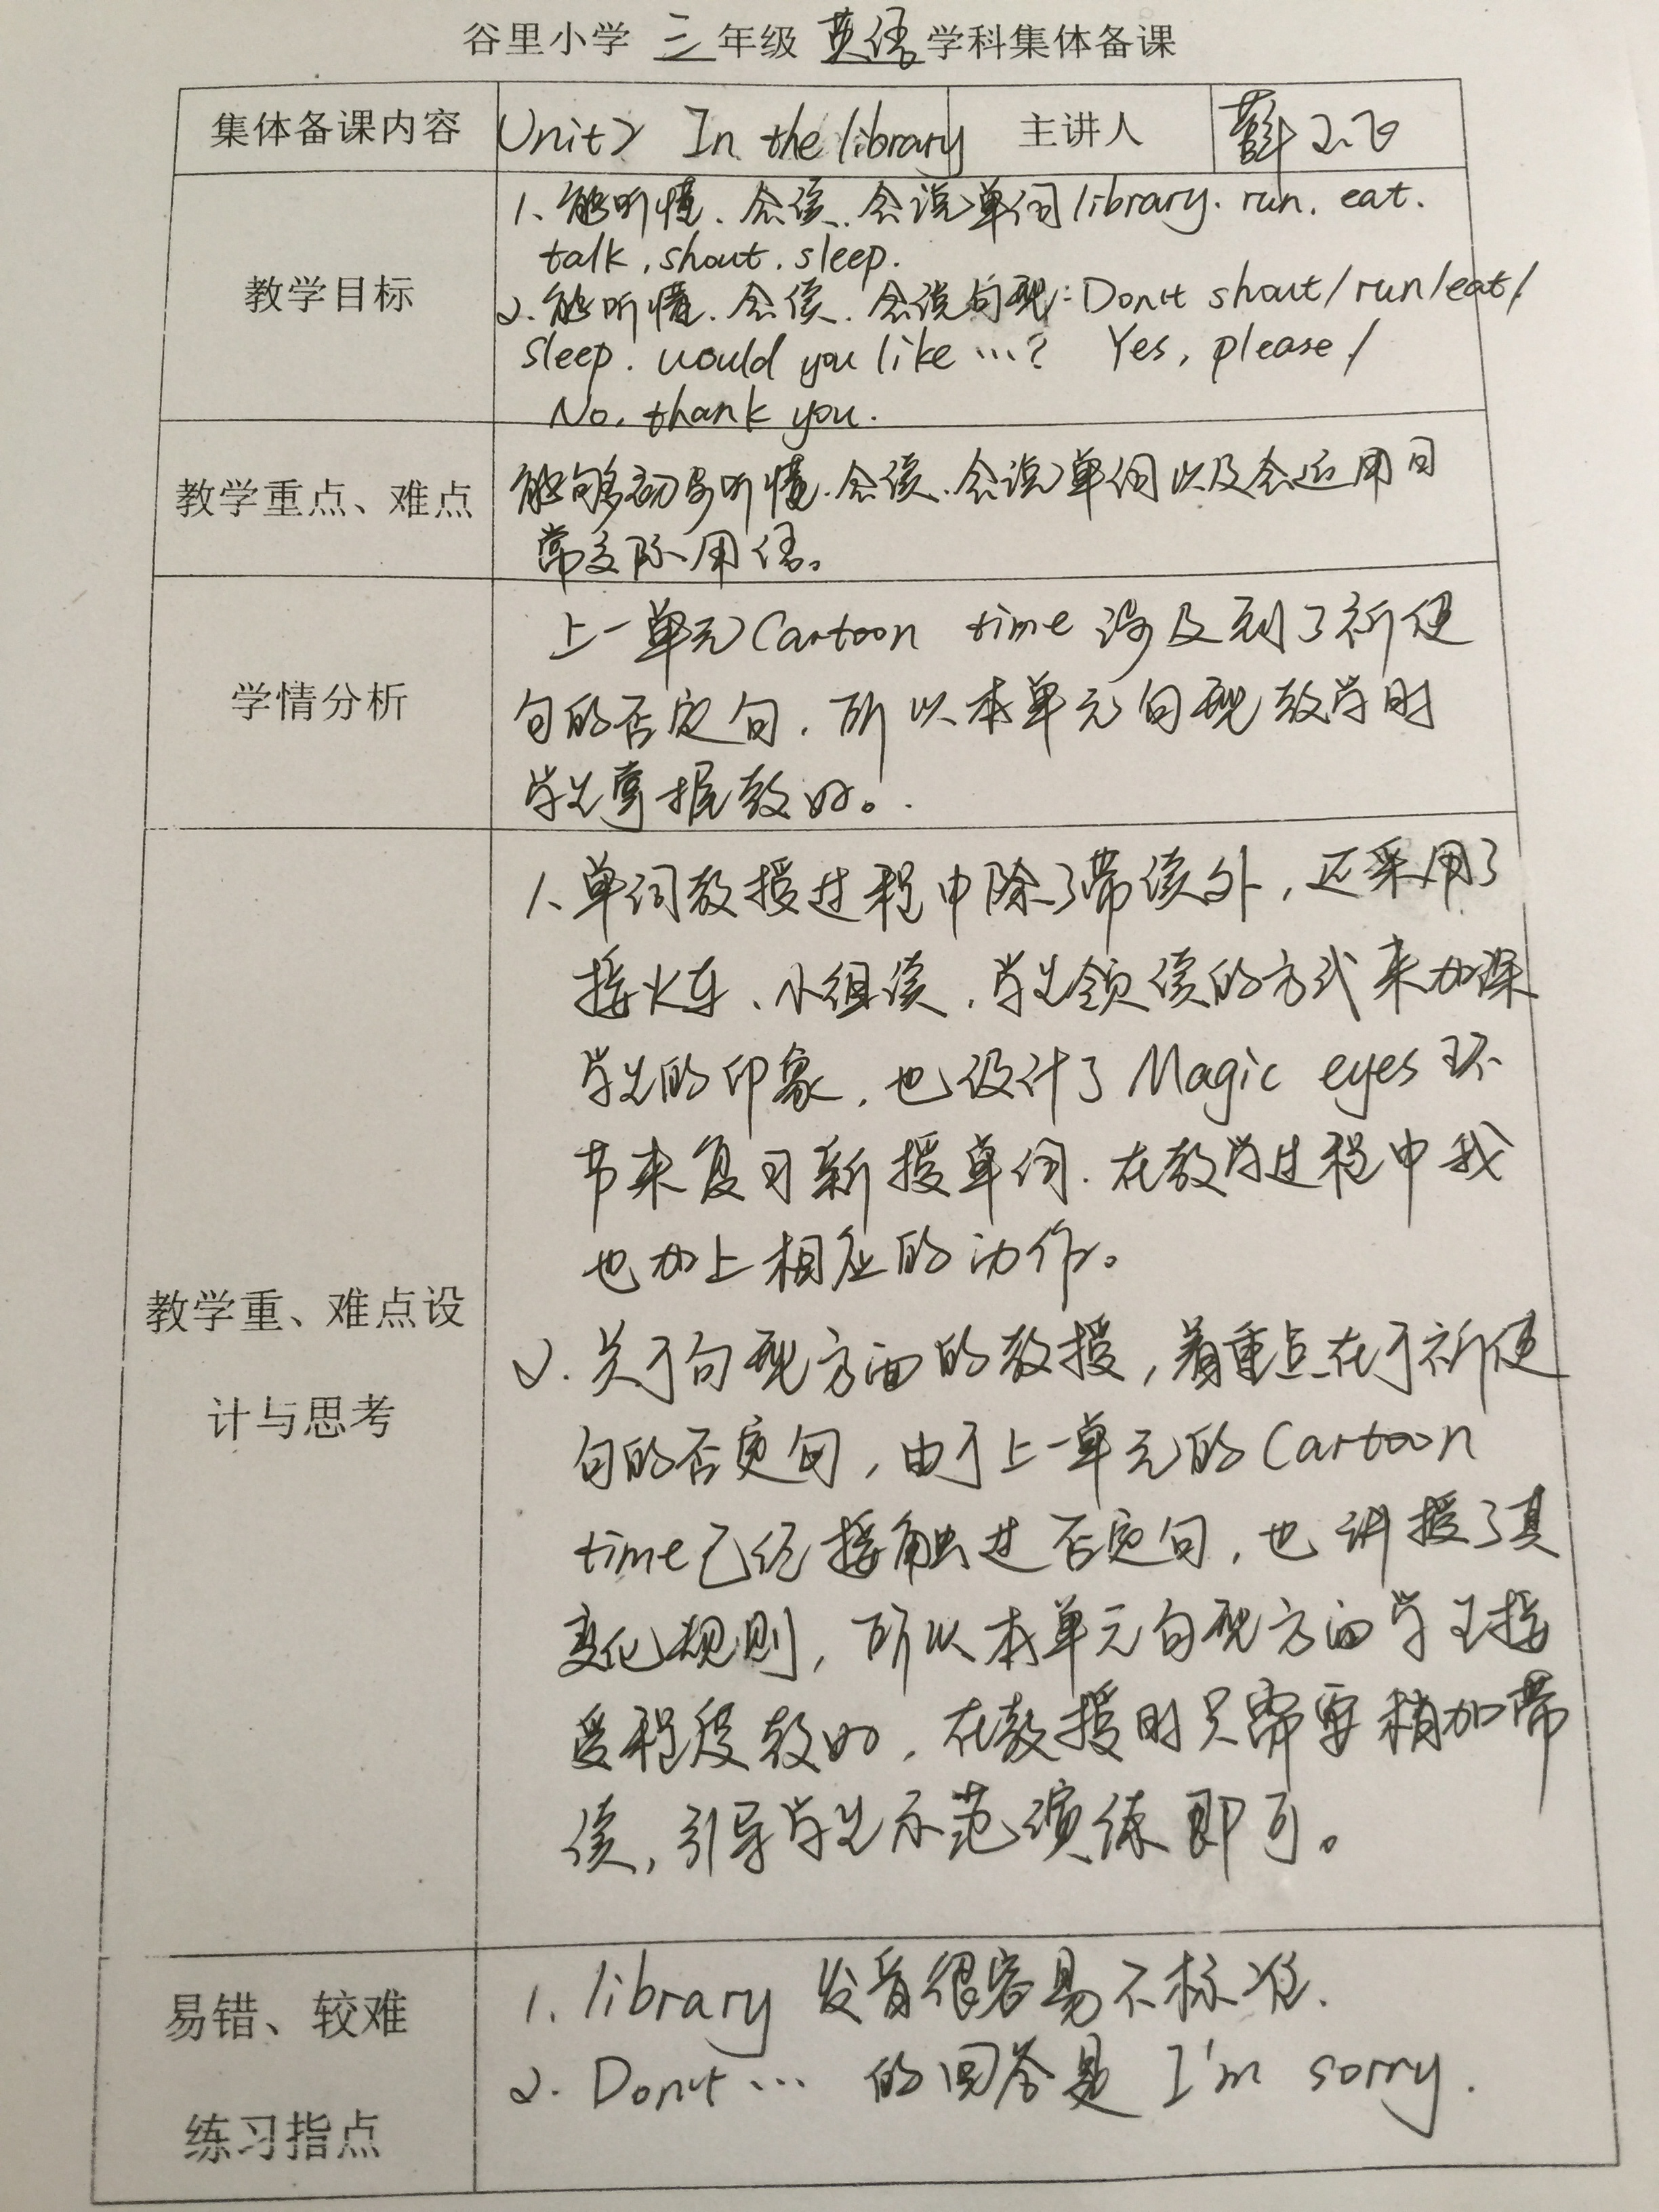 谷里小学 三 年级 英语 学科集体备课
集体备课内容 Unit2 In the library 主讲人
教学目标
1、能听懂、会读、会说单词library. run. eat.
talk, shout, sleep.
2. 能听懂、会读、会说句型: Don't shout/run/eat/
sleep. would you like …? Yes, please /
No, thank you.
教学重点、难点
能够初步听懂、会读、会说单词以及会运用日
常交际用语。
学情分析
上一单元Cartoon time 涉及到了祈使
句的否定句, 所以本单元句型教学时
学生掌握较好。
教学重、难点设
计与思考
1、单词教授过程中除了带读外, 还采用了
接火车、小组读, 学生领读的方式来加深
学生的印象, 也设计了 Magic eyes 环
节来复习新授单词. 在教学过程中我
也加上相应的动作。
2. 关于句型方面的教授, 着重点在于祈使
句的否定句, 由于上一单元的 Cartoon
time已经接触过否定句, 也讲授了其
变化规则, 所以本单元句型方面学生接
受程度较好, 在教授时只需要稍加带
读, 引导学生示范演练即可。
易错、较难
练习指点
1. library 发音很容易不标准.
2. Don't … 的回答是 I'm sorry.